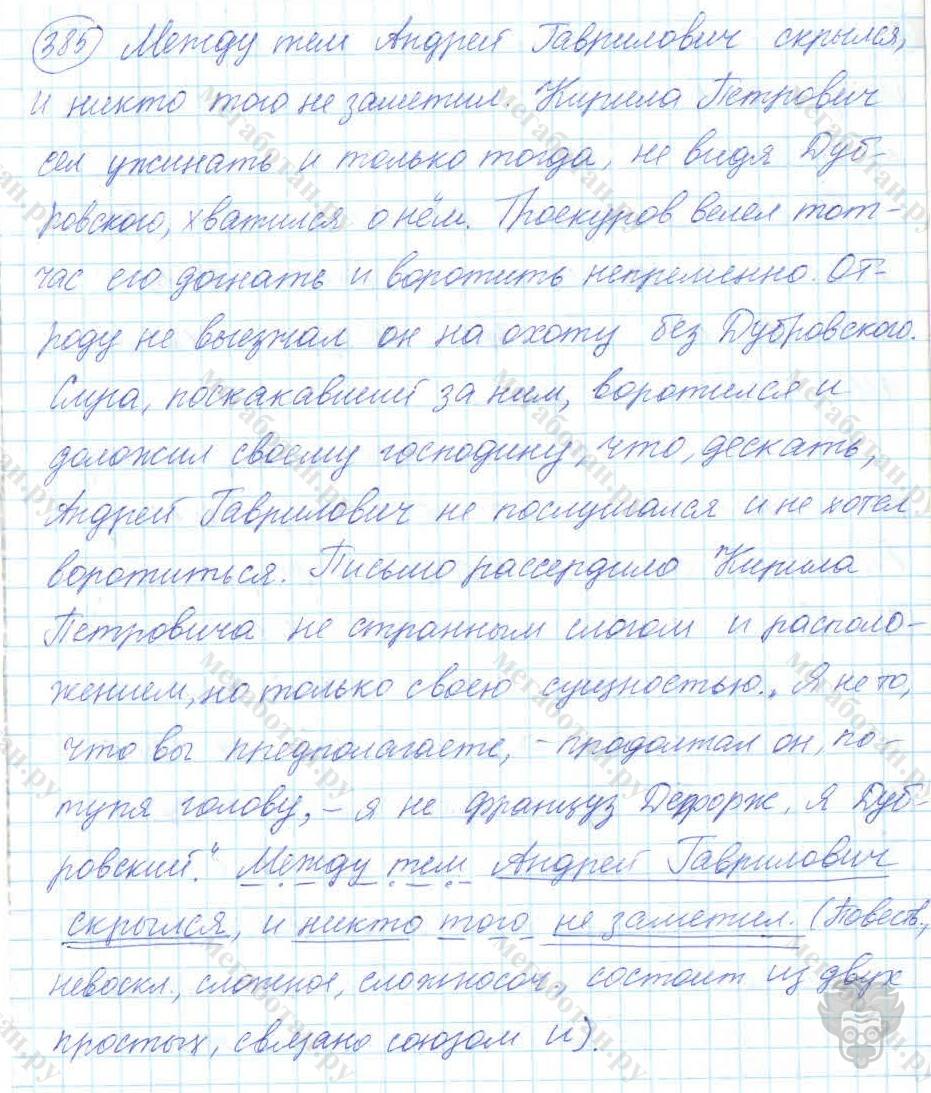 385 Между тем Андрей Гаврилович скрылся,
и никто того не заметил. Кирила Петрович
сел ужинать и только тогда, не видя Дуб-
ровского, хватился о нём. Троекуров велел тот-
час его догнать и воротить непременно. От-
роду не выезжал он на охоту без Дубровского.
Слуга, поскакавший за ним, воротился и
доложил своему господину, что, дескать,
Андрей Гаврилович не послушался и не хотел
воротиться. Письмо рассердило Кирила
Петровича не странным слогом и располо-
жением, но только своею сущностью. „Я не то,
что вы предполагаете, – продолжал он, по-
тупя голову, – я не француз Дефорж, я Дуб-
ровский." Между тем Андрей Гаврилович
скрылся, и никто того не заметил. (Повеств.,
невоскл., сложное, сложносоч., состоит из двух
простых, связано союзом и).
мегаботан.ру